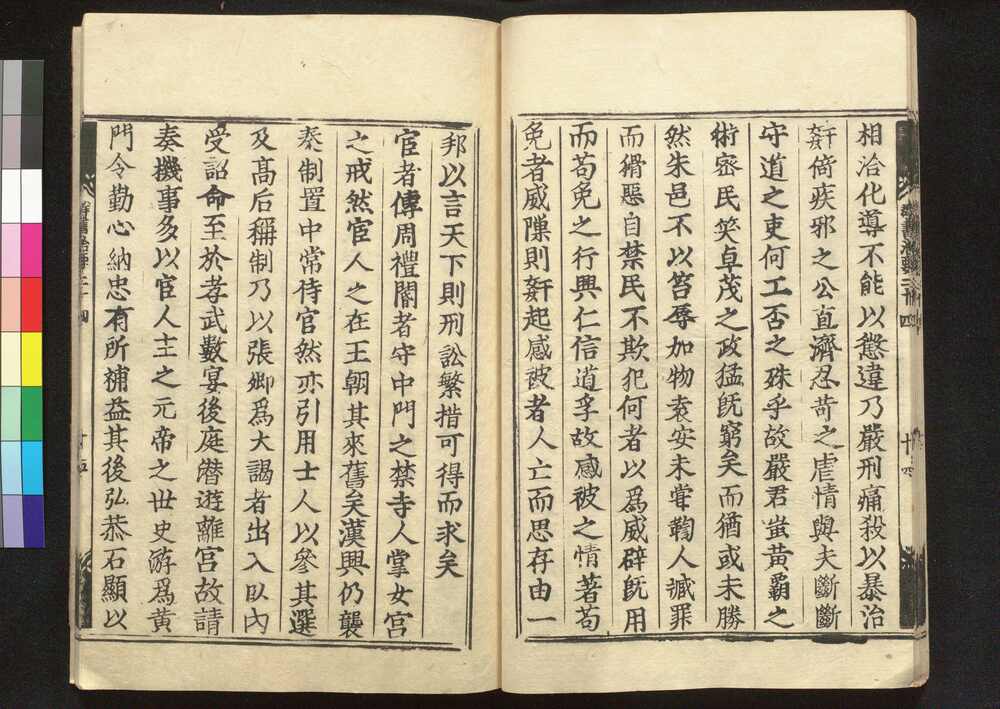 相洽化導不能以懲違乃嚴刑痛殺以暴治
姧倚疾邪之公直濟忍苛之虐情與夫斷斷
守道之吏何工否之殊乎故嚴君蚩黄霸之
術密民笑卓茂之政猛旣窮矣而猶或未勝
然朱邑不以笞辱加物袁安未甞鞫人臧罪
而猾惡自禁民不欺犯何者以爲威辟旣用
而苟免之行興仁信道孚故感被之情著苟
免者威隟則姧起感被者人亡而思存由一
邦以言天下則刑訟繁措可得而求矣
宦者傳周禮閽者守中門之禁寺人掌女宫
之戒然宦人之在王朝其來舊矣漢興仍襲
秦制置中常侍官然亦引用士人以參其選
及髙后稱制乃以張卿爲大謁者出入臥內
受詔命至於孝武數宴後庭潜遊離宫故請
奏機事多以宦人主之元帝之世史游爲黄
門令勤心納忠有所補益其後弘恭石顯以